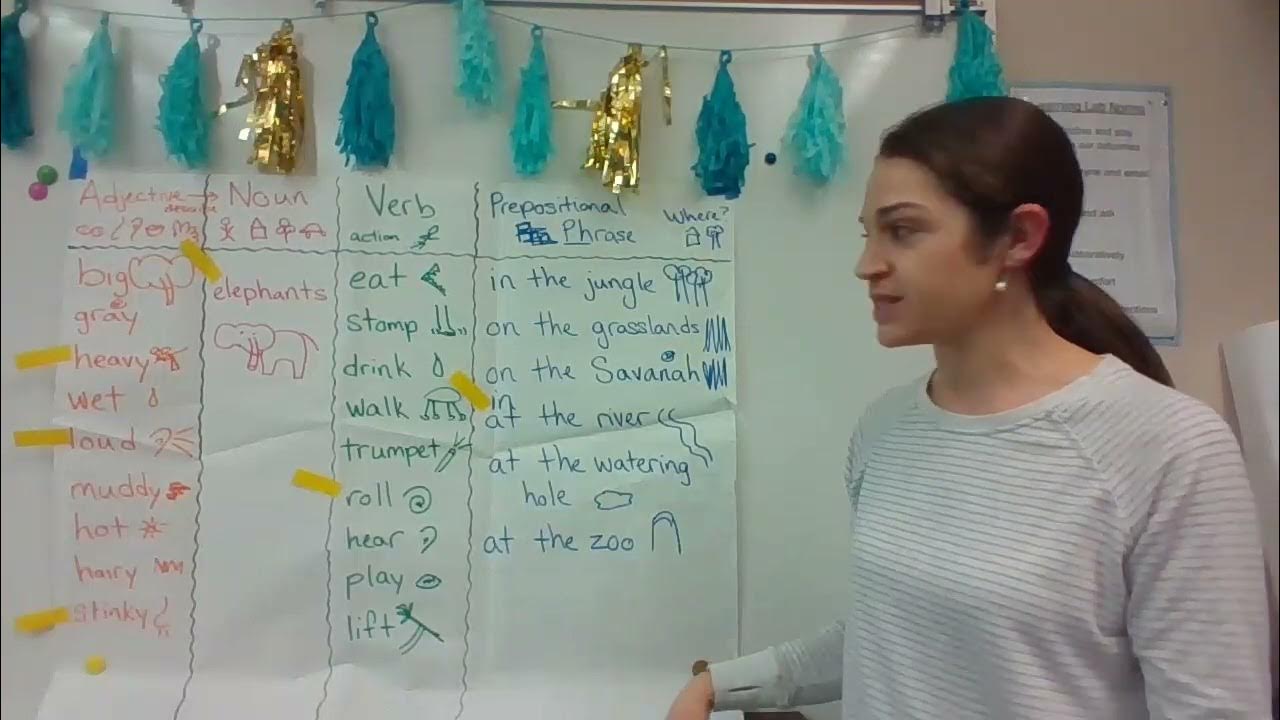 Adjective Noun Verb Prepositional
describe
action Phrase Where?
big elephants eat in the jungle
gray stomp on the grasslands
heavy drink on the Savanah
in
wet walk at the river
loud trumpet at the watering
muddy roll hole
hot hear at the zoo
hairy play
stinky lift
Learning Lab Norms
and stay
our outcomes
and email
and ask